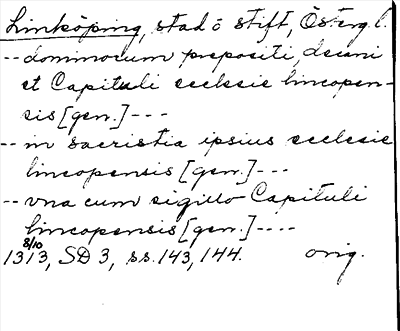 Linköping, stad o stift, Österg. l.
-- dominorum prepositi, decani
et Capituli ecclesie lincopen-
sis [gen.] ---
-- in sacristia ipsius ecclesie
lincopensis [gen.] ---
-- vna cum sigillo Capituli
lincopensis [gen.] ----
8/10
1313, SD 3, ss. 143, 144. orig.